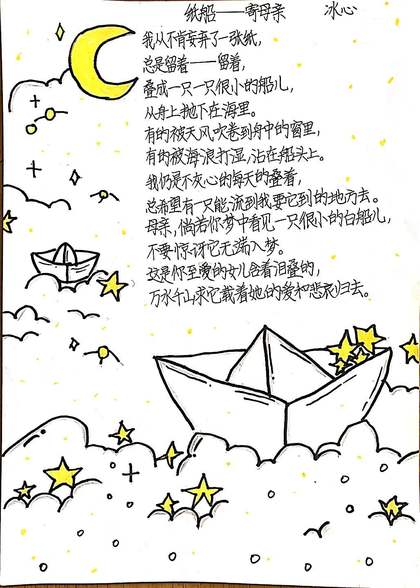 纸船——寄母亲 冰心
我从不肯妄弃了一张纸,
总是留着——留着,
叠成一只一只很小的船儿,
从舟上抛下在海里。
有的被天风吹卷到舟中的窗里,
有的被海浪打湿,沾在船头上。
我仍是不灰心的每天的叠着,
总希望有一只能流到我要它到的地方去。
母亲,倘若你梦中看见一只很小的白船儿,
不要惊讶它无端入梦。
这是你至爱的女儿含着泪叠的,
万水千山求它载着她的爱和悲哀归去。